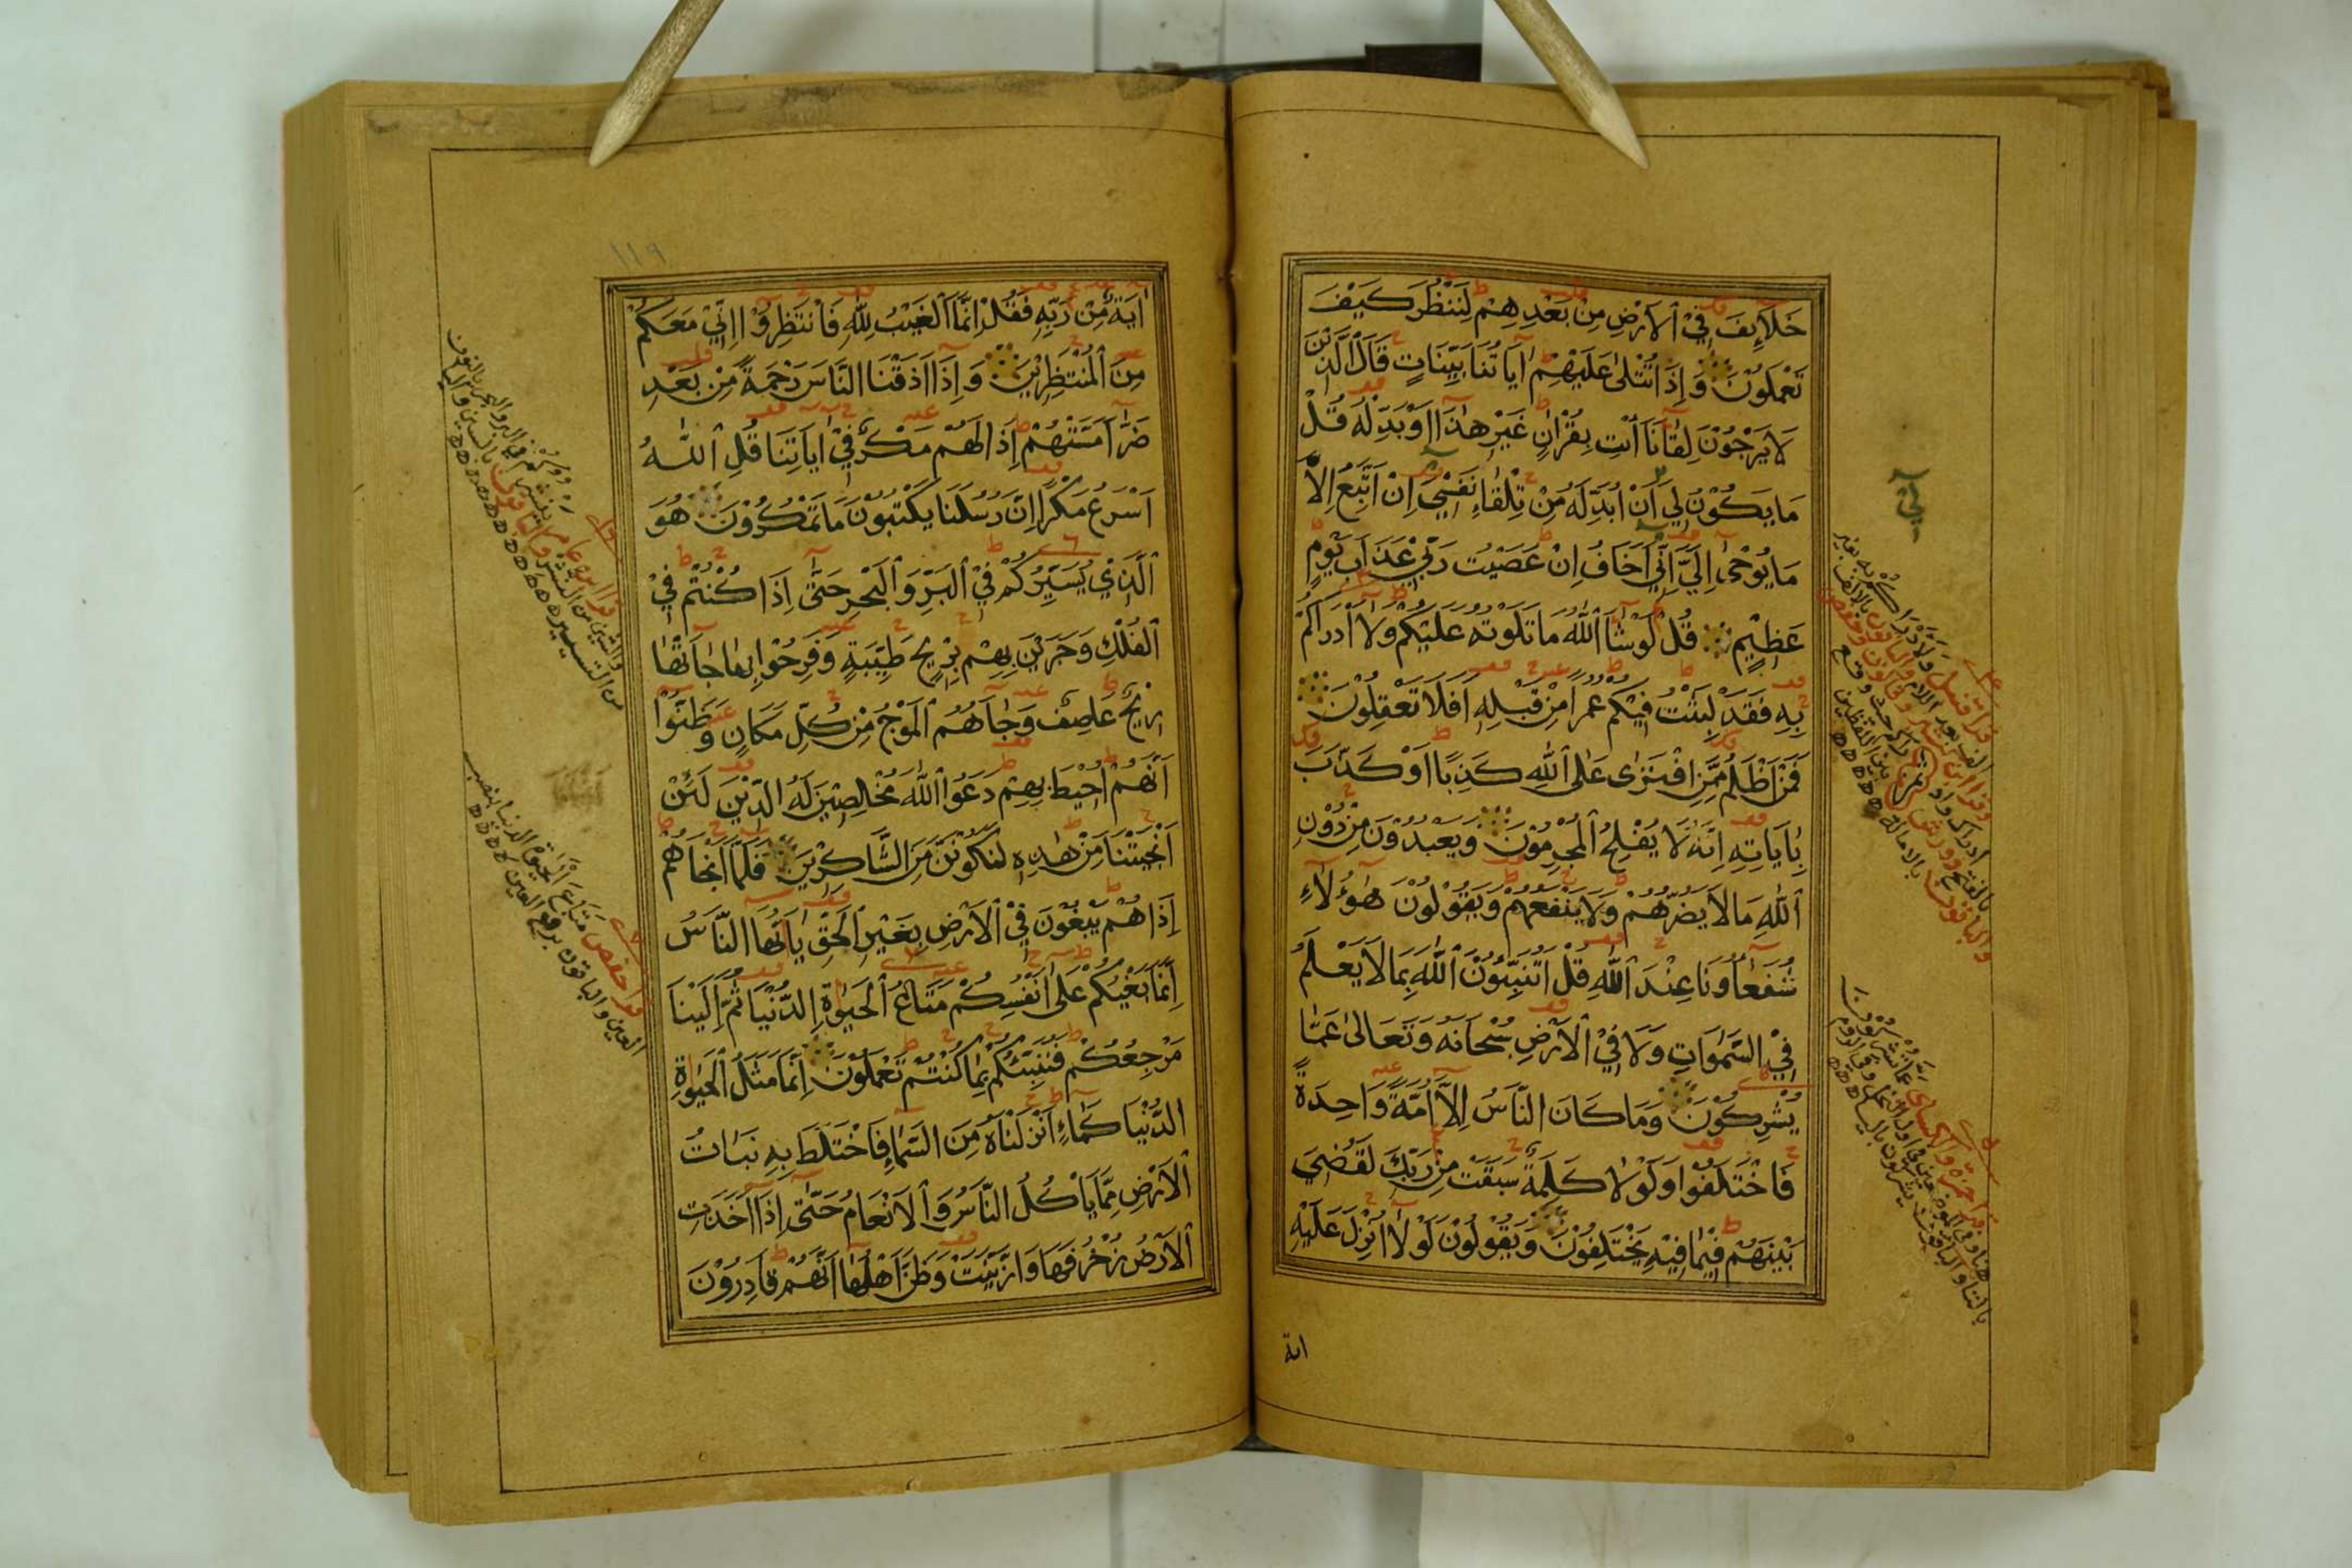 خَلَآئِفَ فِيْ ٱلْاَرْضِ مِنْ بَعْدِهِمْ لِنَنْظُرَ كَيْفَ
تَعْمَلُوْنَ وَاِذَا تُتْلٰى عَلَيْهِمْ اٰيَاتُنَا بَيِّنَاتٍ قَالَ الَّذِيْنَ
لَا يَرْجُوْنَ لِقَآءَنَا ٱئْتِ بِقُرْاٰنٍ غَيْرِ هٰذَا اَوْ بَدِّلْهُ قُلْ
مَا يَكُوْنُ لِيْ اَنْ اُبَدِّلَهُ مِنْ تِلْقَاءِ نَفْسِيْ اِنْ اَتَّبِعُ اِلَّا
مَا يُوْحٰى اِلَيَّ اِنِّيْ اَخَافُ اِنْ عَصَيْتُ رَبِّيْ عَذَابَ يَوْمٍ
عَظِيْمٍ قُلْ لَوْ شَآءَ ٱللّٰهُ مَا تَلَوْتُهُ عَلَيْكُمْ وَلَا اَدْرَاكُمْ
بِهِ فَقَدْ لَبِثْتُ فِيْكُمْ عُمُرًا مِنْ قَبْلِهِ اَفَلَا تَعْقِلُوْنَ
فَمَنْ اَظْلَمُ مِمَّنِ افْتَرٰى عَلَى ٱللّٰهِ كَذِبًا اَوْ كَذَّبَ
بِاٰيَاتِهِ اِنَّهُ لَا يُفْلِحُ ٱلْمُجْرِمُوْنَ وَيَعْبُدُوْنَ مِنْ دُوْنِ
ٱللّٰهِ مَا لَا يَضُرُّهُمْ وَلَا يَنْفَعُهُمْ وَيَقُوْلُوْنَ هٰؤُلَاءِ
شُفَعَاؤُنَا عِنْدَ ٱللّٰهِ قُلْ اَتُنَبِّئُوْنَ ٱللّٰهَ بِمَا لَا يَعْلَمُ
فِي السَّمٰوَاتِ وَلَا فِيْ ٱلْاَرْضِ سُبْحَانَهُ وَتَعَالٰى عَمَّا
يُشْرِكُوْنَ وَمَا كَانَ النَّاسُ اِلَّا اُمَّةً وَاحِدَةً
فَاخْتَلَفُوْا وَلَوْلَا كَلِمَةٌ سَبَقَتْ مِنْ رَبِّكَ لَقُضِيَ
بَيْنَهُمْ فِيْمَا فِيْهِ يَخْتَلِفُوْنَ وَيَقُوْلُوْنَ لَوْلَا اُنْزِلَ عَلَيْهِ
اية
لِيَ
١١٩
اٰيَةٌ مِّنْ رَبِّهِ فَقُلْ اِنَّمَا ٱلْغَيْبُ لِلّٰهِ فَانْتَظِرُوْا اِنِّيْ مَعَكُمْ
مِنَ ٱلْمُنْتَظِرِيْنَ وَاِذَا اَذَقْنَا النَّاسَ رَحْمَةً مِنْ بَعْدِ
ضَرَّآءَ مَسَّتْهُمْ اِذَا لَهُمْ مَكْرٌ فِيْ اٰيَاتِنَا قُلِ ٱللّٰهُ
اَسْرَعُ مَكْرًا اِنَّ رُسُلَنَا يَكْتُبُوْنَ مَا تَمْكُرُوْنَ هُوَ
ٱلَّذِيْ يُسَيِّرُكُمْ فِيْ ٱلْبَرِّ وَٱلْبَحْرِ حَتّٰى اِذَا كُنْتُمْ فِيْ
ٱلْفُلْكِ وَجَرَيْنَ بِهِمْ بِرِيْحٍ طَيِّبَةٍ وَفَرِحُوْا بِهَا جَآءَتْهَا
رِيْحٌ عَاصِفٌ وَجَآءَهُمُ ٱلْمَوْجُ مِنْ كُلِّ مَكَانٍ وَظَنُّوْا
اَنَّهُمْ اُحِيْطَ بِهِمْ دَعَوُا ٱللّٰهَ مُخْلِصِيْنَ لَهُ الدِّيْنَ لَئِنْ
اَنْجَيْتَنَا مِنْ هٰذِهِ لَنَكُوْنَنَّ مِنَ الشَّاكِرِيْنَ فَلَمَّا اَنْجَاهُمْ
اِذَا هُمْ يَبْغُوْنَ فِيْ ٱلْاَرْضِ بِغَيْرِ ٱلْحَقِّ يَاَيُّهَا النَّاسُ
اِنَّمَا بَغْيُكُمْ عَلٰى اَنْفُسِكُمْ مَتَاعَ ٱلْحَيٰوةِ الدُّنْيَا ثُمَّ اِلَيْنَا
مَرْجِعُكُمْ فَنُنَبِّئُكُمْ بِمَا كُنْتُمْ تَعْمَلُوْنَ اِنَّمَا مَثَلُ ٱلْحَيٰوةِ
الدُّنْيَا كَمَاءٍ اَنْزَلْنَاهُ مِنَ السَّمَاءِ فَاخْتَلَطَ بِهِ نَبَاتُ
ٱلْاَرْضِ مِمَّا يَاْكُلُ النَّاسُ وَٱلْاَنْعَامُ حَتّٰى اِذَا اَخَذَتِ
ٱلْاَرْضُ زُخْرُفَهَا وَازَّيَّنَتْ وَظَنَّ اَهْلُهَا اَنَّهُمْ قَادِرُوْنَ
قرا حفص مَتَاعَ الْحَيٰوةِ الدنيا بنصب
العين والباقون برفع العين